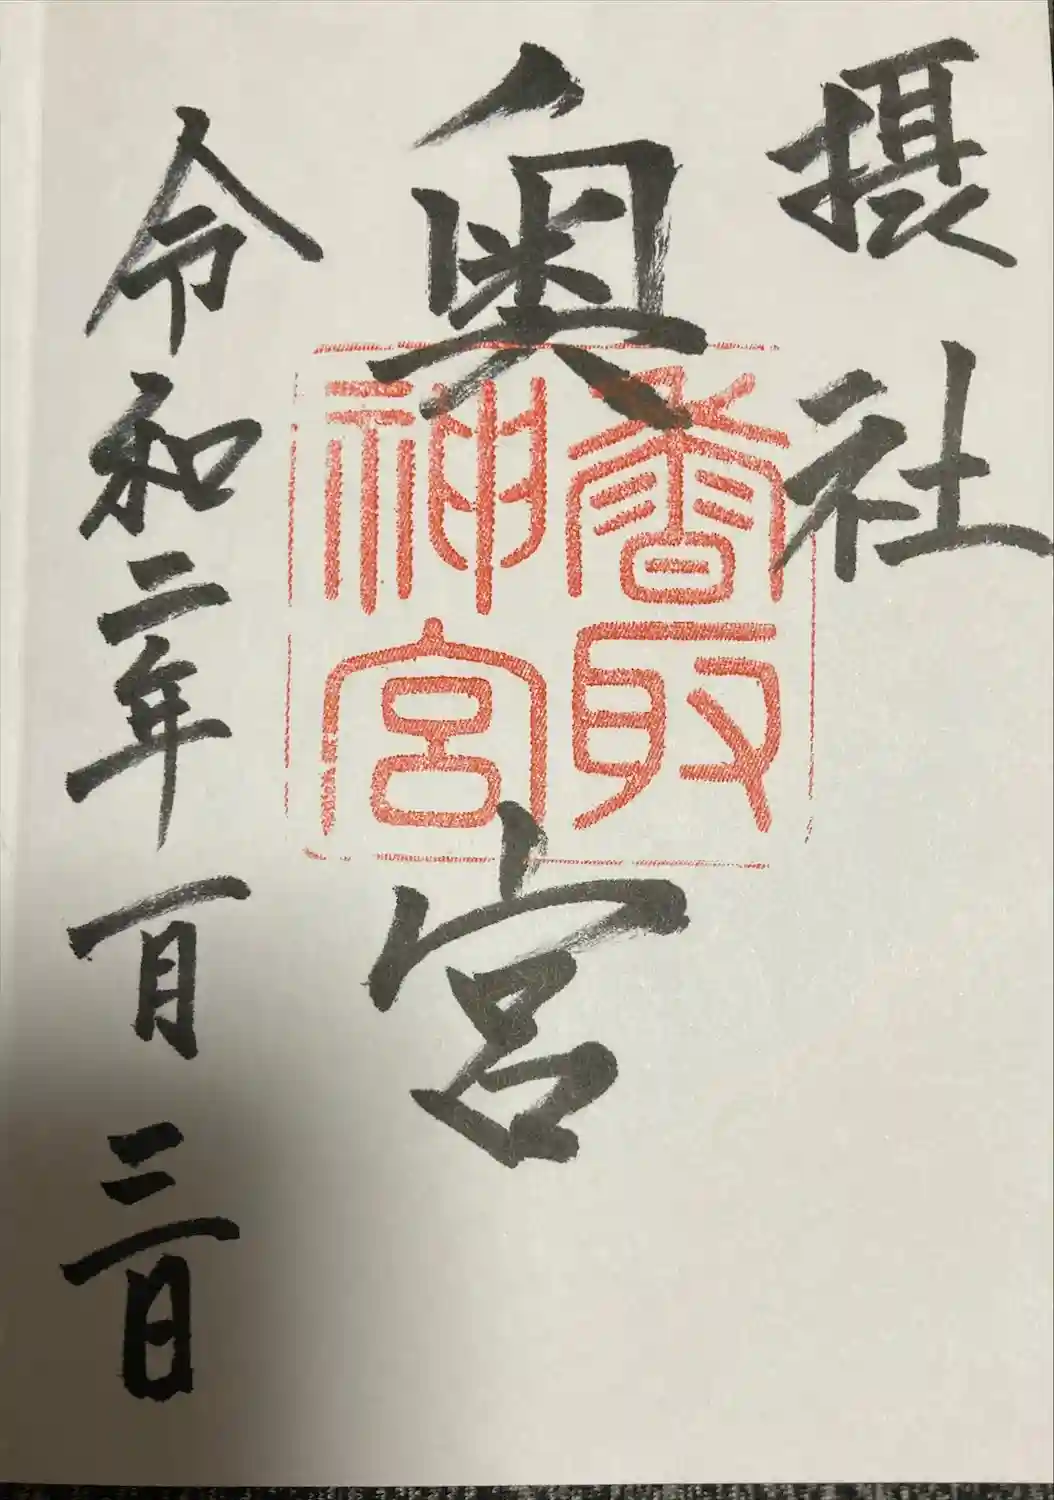 摂社
奥宮
香取
神宮
令和二年一月三日